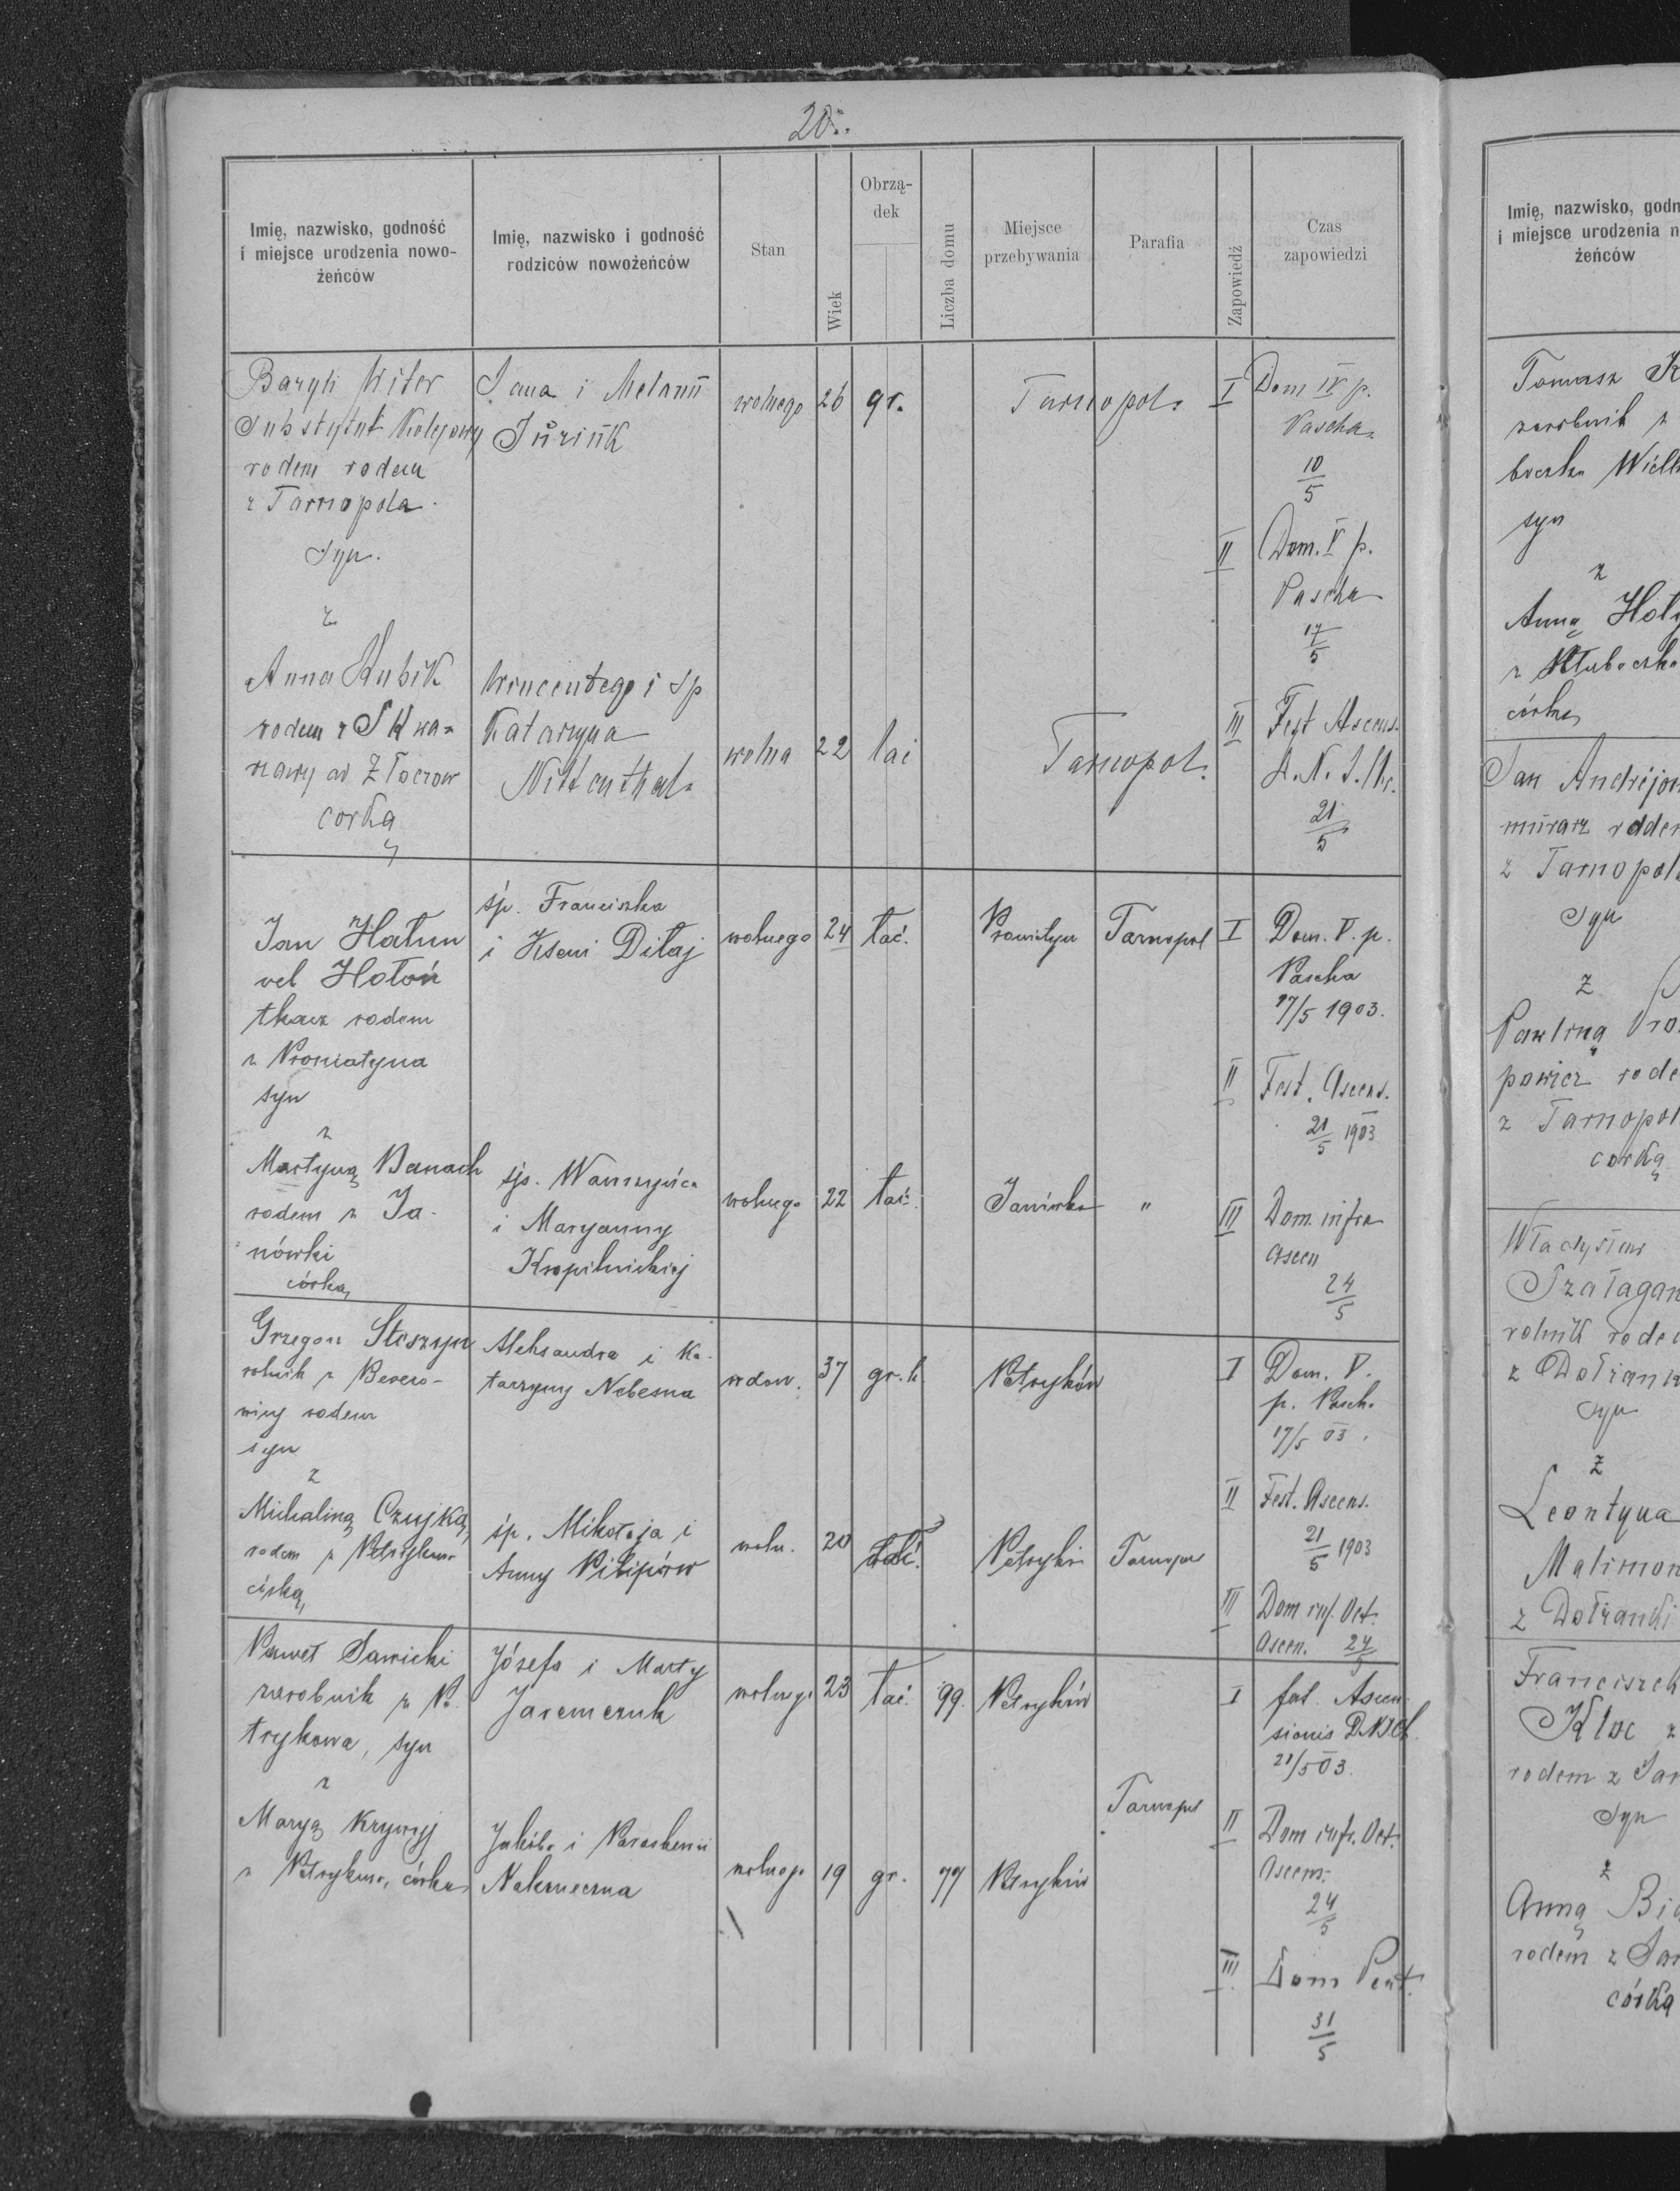 20.
Imię, nazwisko, godność
i miejsce urodzenia nowo-
żeńców
Imię, nazwisko i godność
rodziców nowożeńców
Stan
Wiek
Obrzą-
dek
Liczba domu
Miejsce
przebywania
Parafia
Zapowiedź
Czas
zapowiedzi
Bazyli Witer
Substytut Kolejowy
rodem rodem
z Tarnopola
Syn.
Jana i Melanii
wolnego 26 gr.
Tarnopol
I Dom IV p.
Pascha
10/5
II Dom. V p.
Pascha
17/5
z
Anna Kubik
rodem z
ad Złoczow
corką
Wincentego i sp
Katarzyna
wolna 22 łac
Tarnopol
III Fest Ascens.
21/5
Jan Hatun
vel Hołoń
tkacz rodem
z Proniatyna
syn
śp. Franciszka
i Kseni Ditaj
wolnego 24 łać. Proniatyn Tarnopol
I Dom. V. p.
Pascha
17/5 1903.
II Fest. Ascens.
21/5 1903
z
Martyną Banach
rodem z Ja-
nówki
córką
śp. Wawrzyńca
i Maryanny
Kropilnickiej
wolnego 22 łać. Janówka "
III Dom. infra
Ascen
24/5
Grzegorz Steszyn
rolnik z Berezo-
wicy rodem
syn
Aleksandra i Ka-
tarzyny Nebesna
wdow. 37 gr. k Petryków
I Dom. V.
p. Pasch.
17/5 03.
II Fest. Ascens.
21/5 1903
z
Michaliną Czujką,
rodem z Petrykowa
córką,
śp. Mikołaja i
Anny Pilipów
woln. 20 łać. Petryków Tarnopol
III Dom inf. Oct.
Ascen. 24/5
Paweł Sawicki
zarobnik z Pe-
trykowa, syn
Józefa i Marty
Jaremczuk
wolnego 23 łać. 99. Petryków
I fest. Ascen-
sionis D.N.J.Ch.
21/5 03.
Tarnopol
II Dom infr. Oct.
Ascens.
24/5
z
Maryą Krywyj
z Petrykowa, córką
Jakóba i Paraskewii
Nakoneczna
wolnego 19 gr. 77 Petryków
III Dom Pent.
31/5
Imię, nazwisko, godn
i miejsce urodzenia n
żeńców
Tomasz K
zarobnik z
syn
z
Anną Hoł
córką
Jan Andrijow
murarz rodem
z Tarnopola
Syn
z
Pawliną Pro
powicz rode
z Tarnopol
corką
Władysław
Szałagan
rolnik rode
z Dołżank
Syn
z
Leontyna
Malimon
z Dołżanki
Franciszek
Kloc z
rodem z Jan
Syn
z
Anną Bi
rodem z Jan
córką